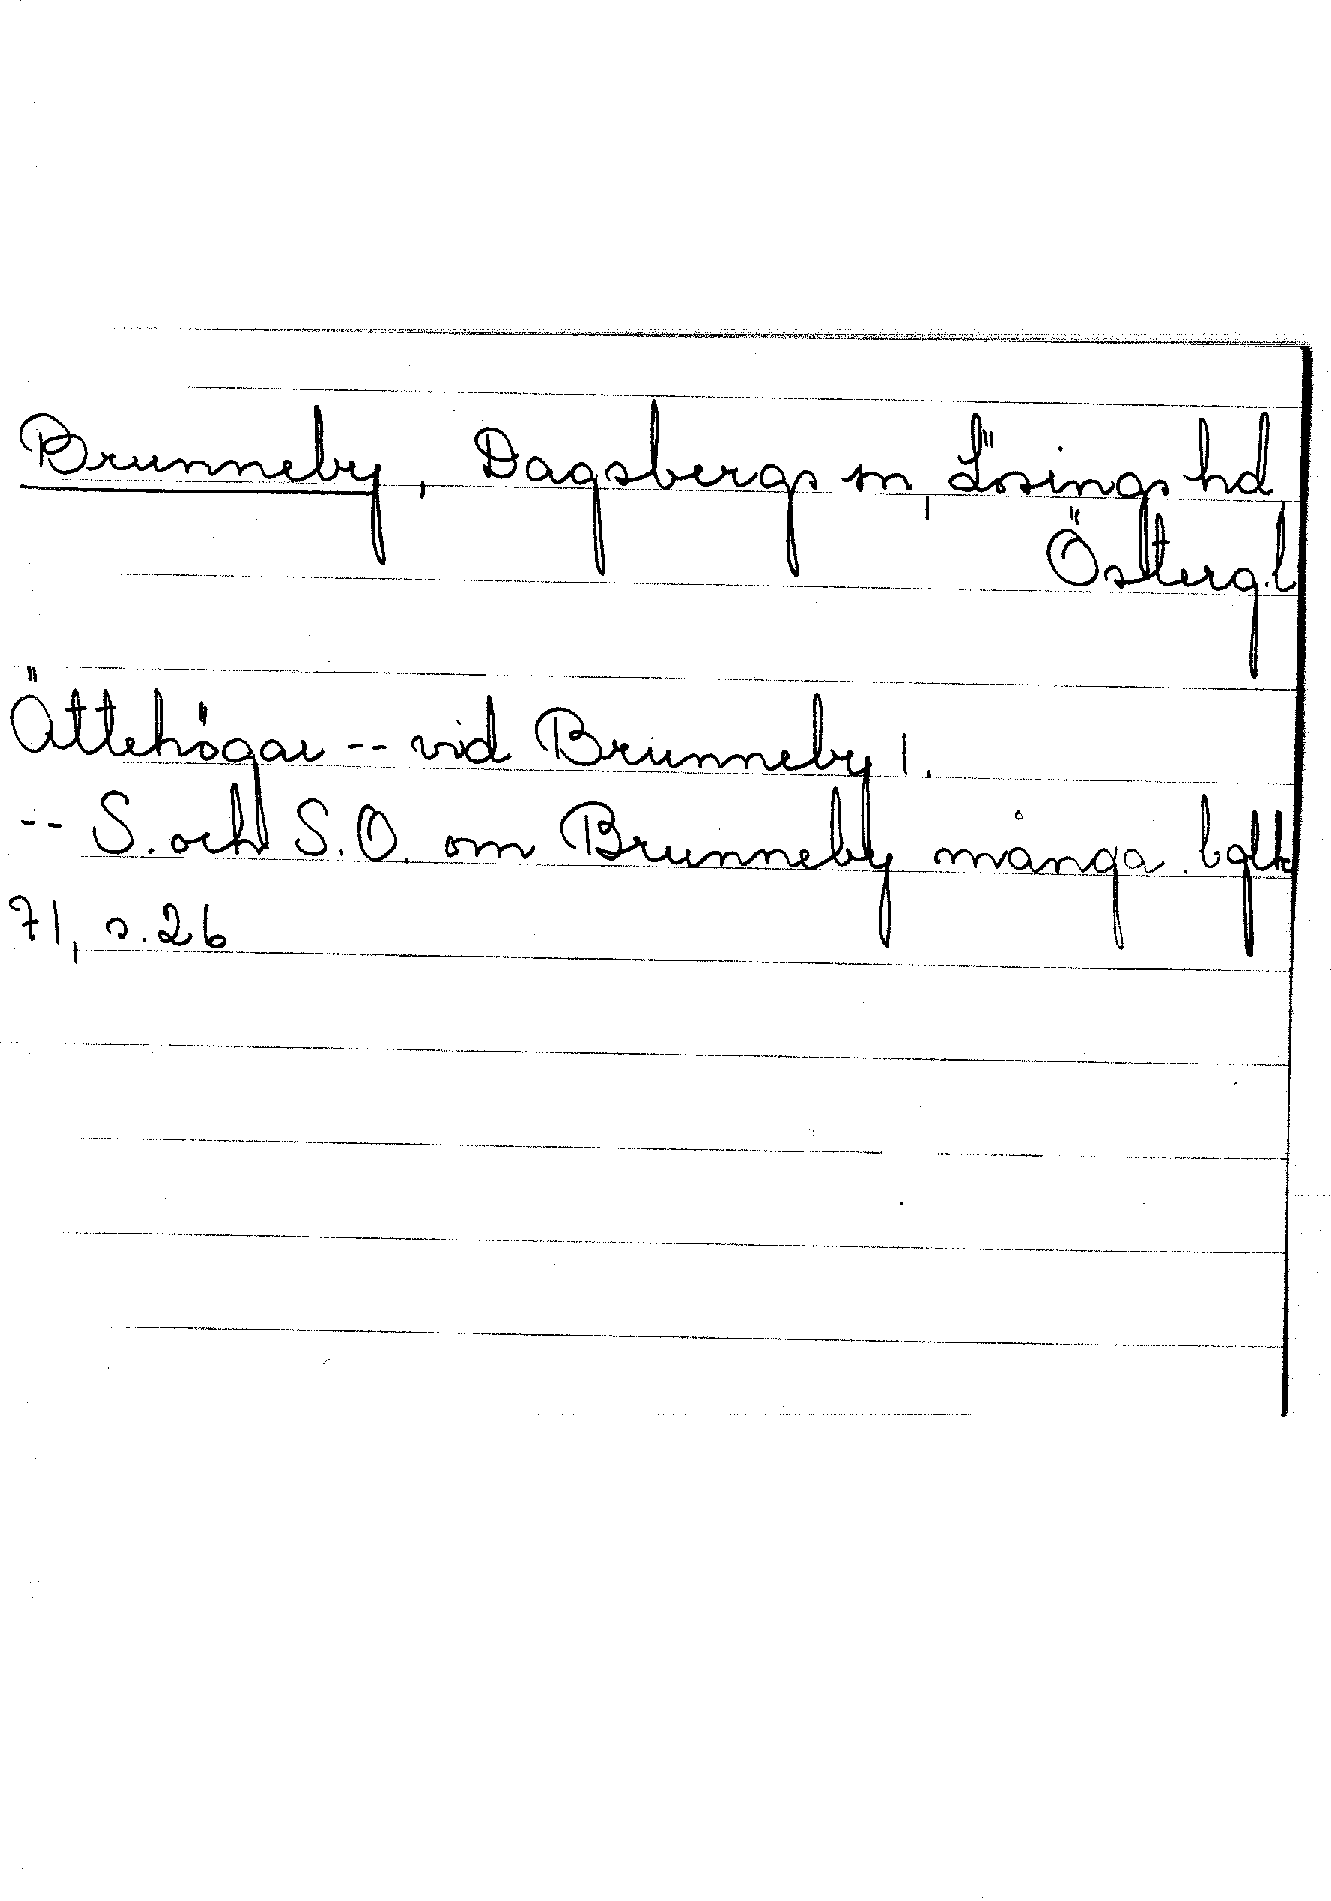 Brunneby, Dagsbergs sn, Lösings hd
Österg.l
Ättehögar -- vid Brunneby 1.
-- S. och S.O. om Brunneby många. bglbl
71, s. 26